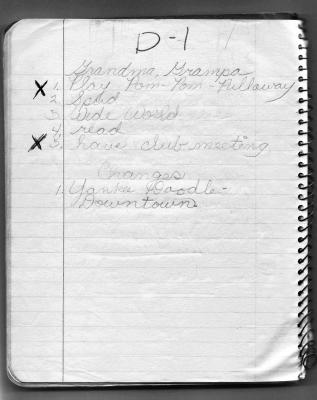 D-1
Grandma, Grampa
X 1. Play Pom-Pom-Pullaway
2. Spud
3. Wide World
4. read
X 5. have club meeting
Changes
1. Yankee Doodle-
Downtown